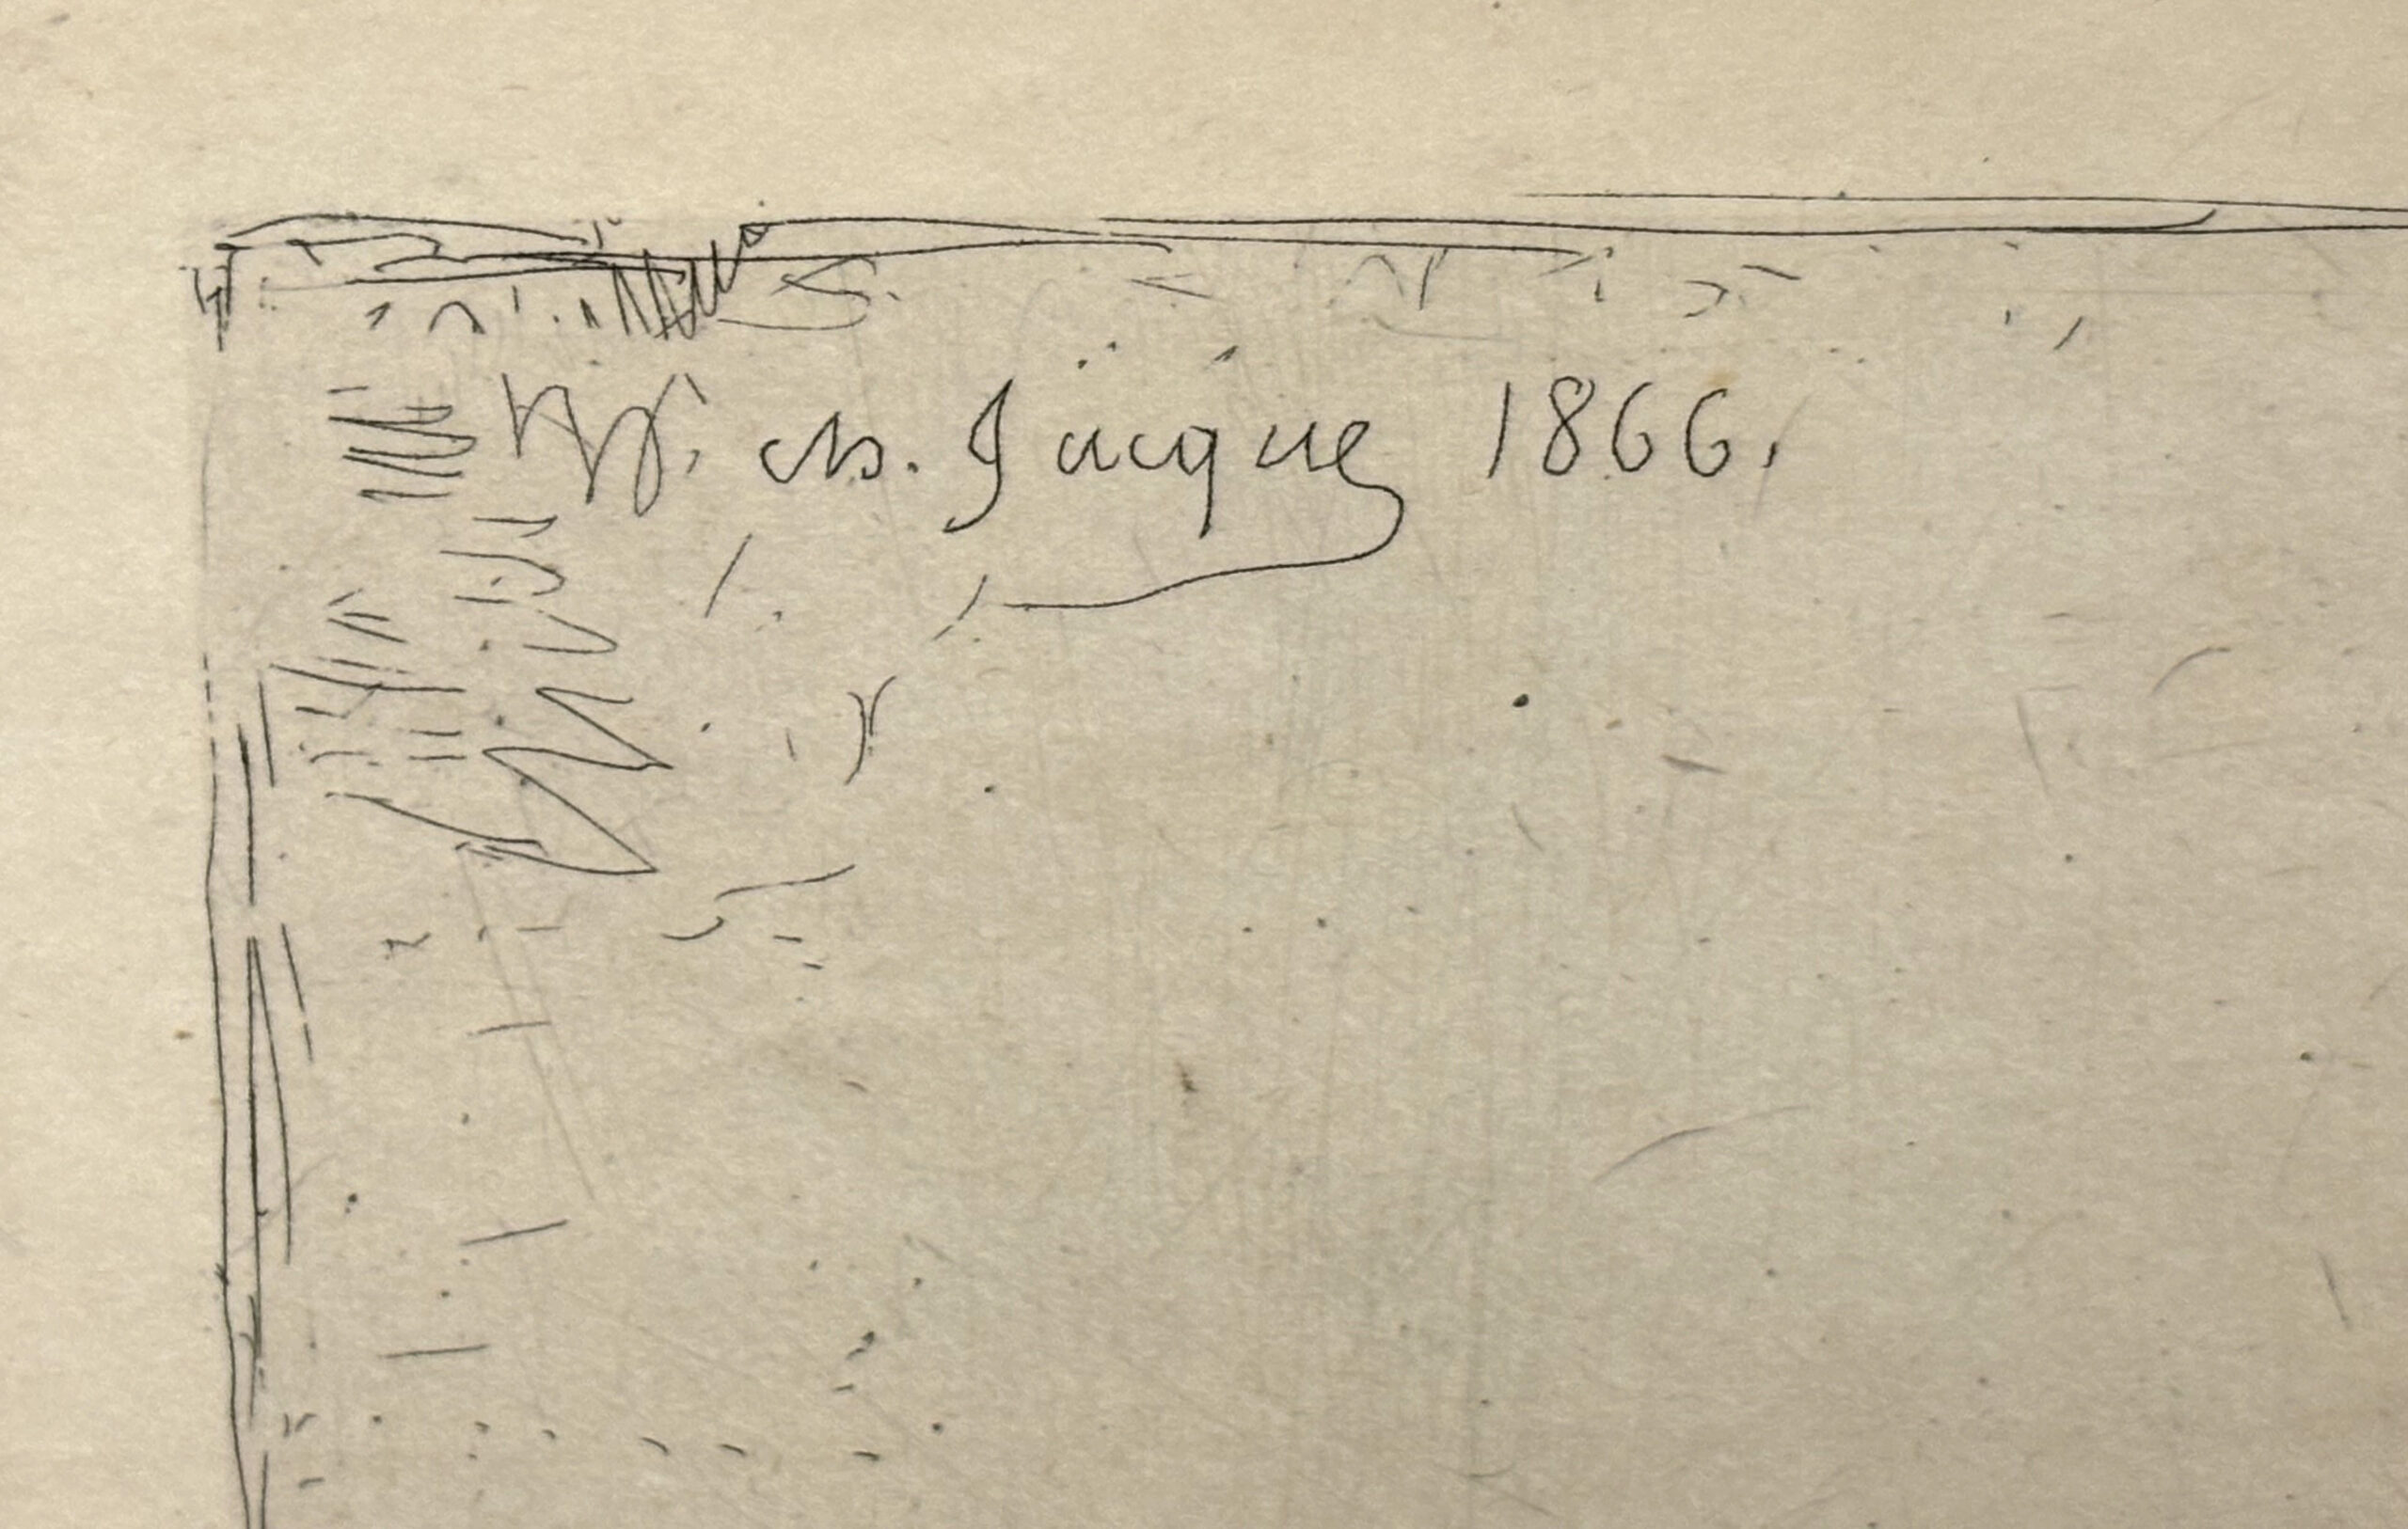 ch. Jacque 1866.